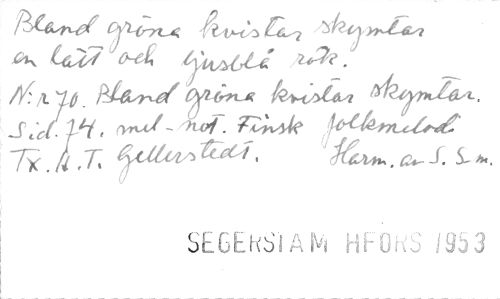 Bland gröna kvistar skymtar
en lätt och ljusblå rök.
N:r 70. Bland gröna kvistar skymtar.
Sid. 74. mel-not. Finsk folkmelodi
Tx. A. T. Gellerstedt. Harm. av S. Sm.
SEGERSTAM HFORS 1953